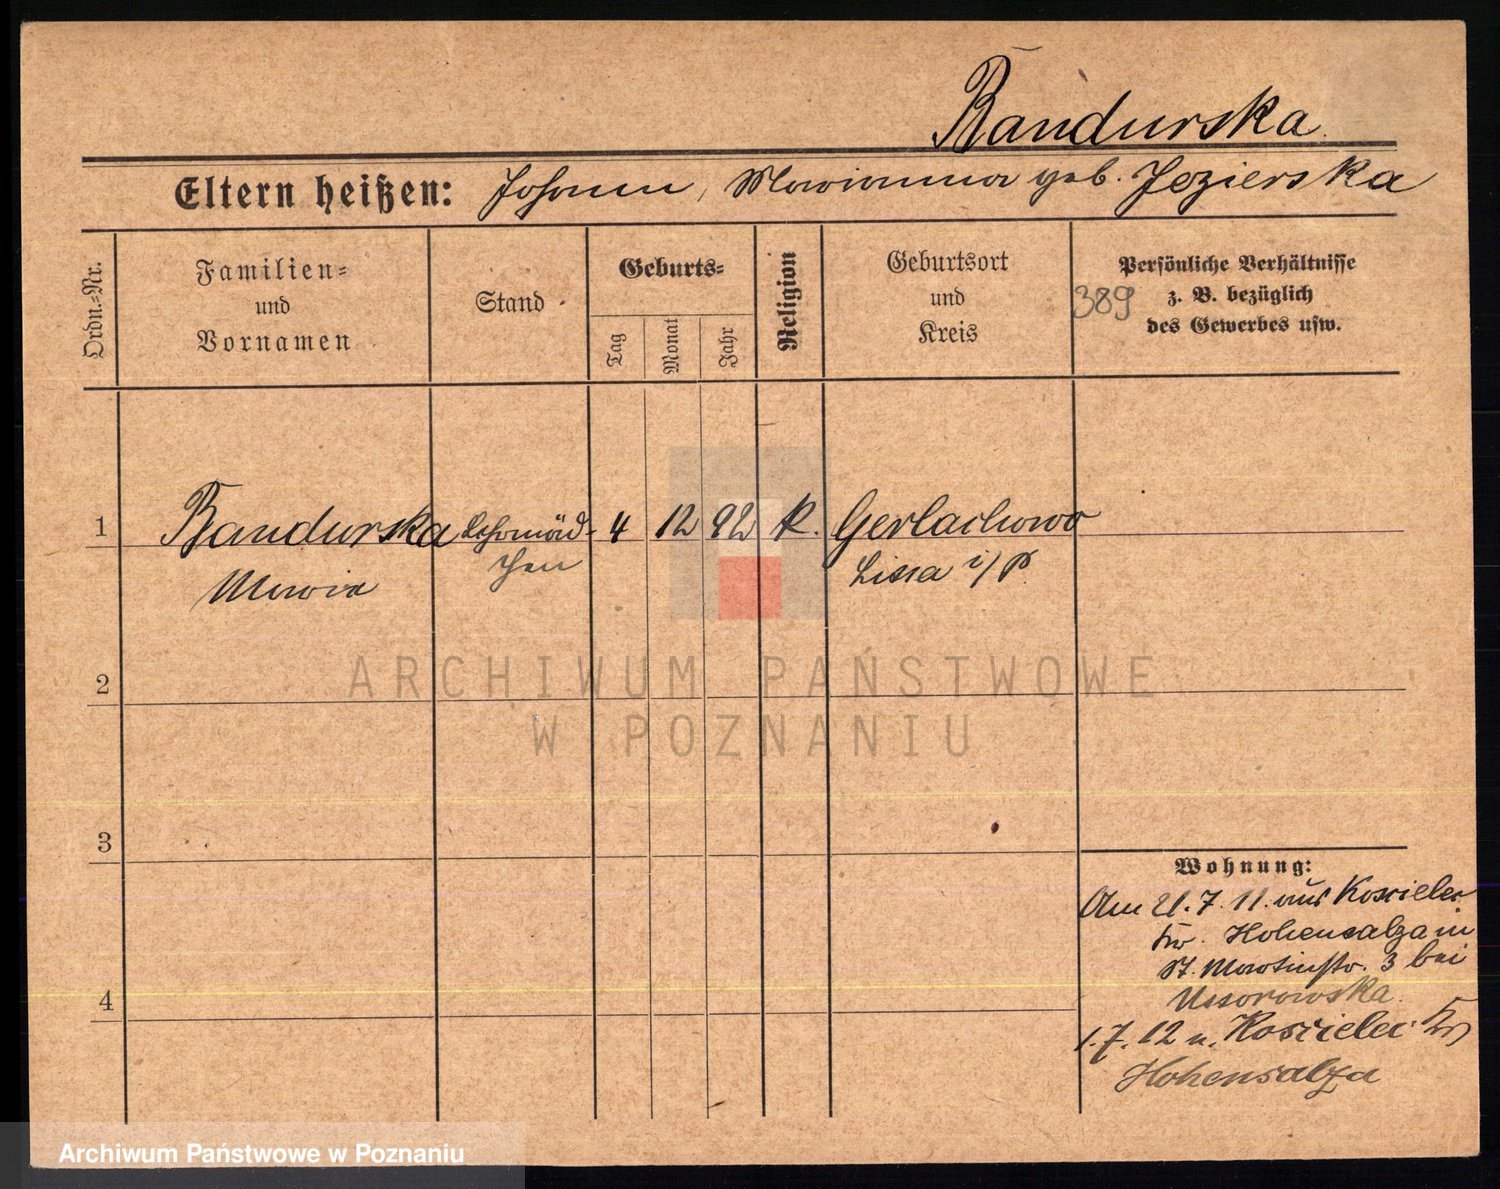 Bandurska
Eltern heißen: Johann, Marianna geb. Jezierska
Ordn.-Nr.
Familien-
und
Vornamen
Stand
Geburts-
Tag
Monat
Jahr
Religion
Geburtsort
und
Kreis
Persönliche Verhältnisse
z. B. bezüglich
des Gewerbes usw.
389
1 Bandurska Lehrmäd- 4 12 92 k. Gerlachowo
Maria chen Lissa i/P.
2
3
4
Wohnung:
Am 21.7.11. aus Koscielec
Kr. Hohensalza in
St. Martinstr. 3 bei
Ussorowska.
1.7.12 n. Koscielec Kr
Hohensalza
ARCHIWUM PAŃSTWOWE
W POZNANIU
Archiwum Państwowe w Poznaniu